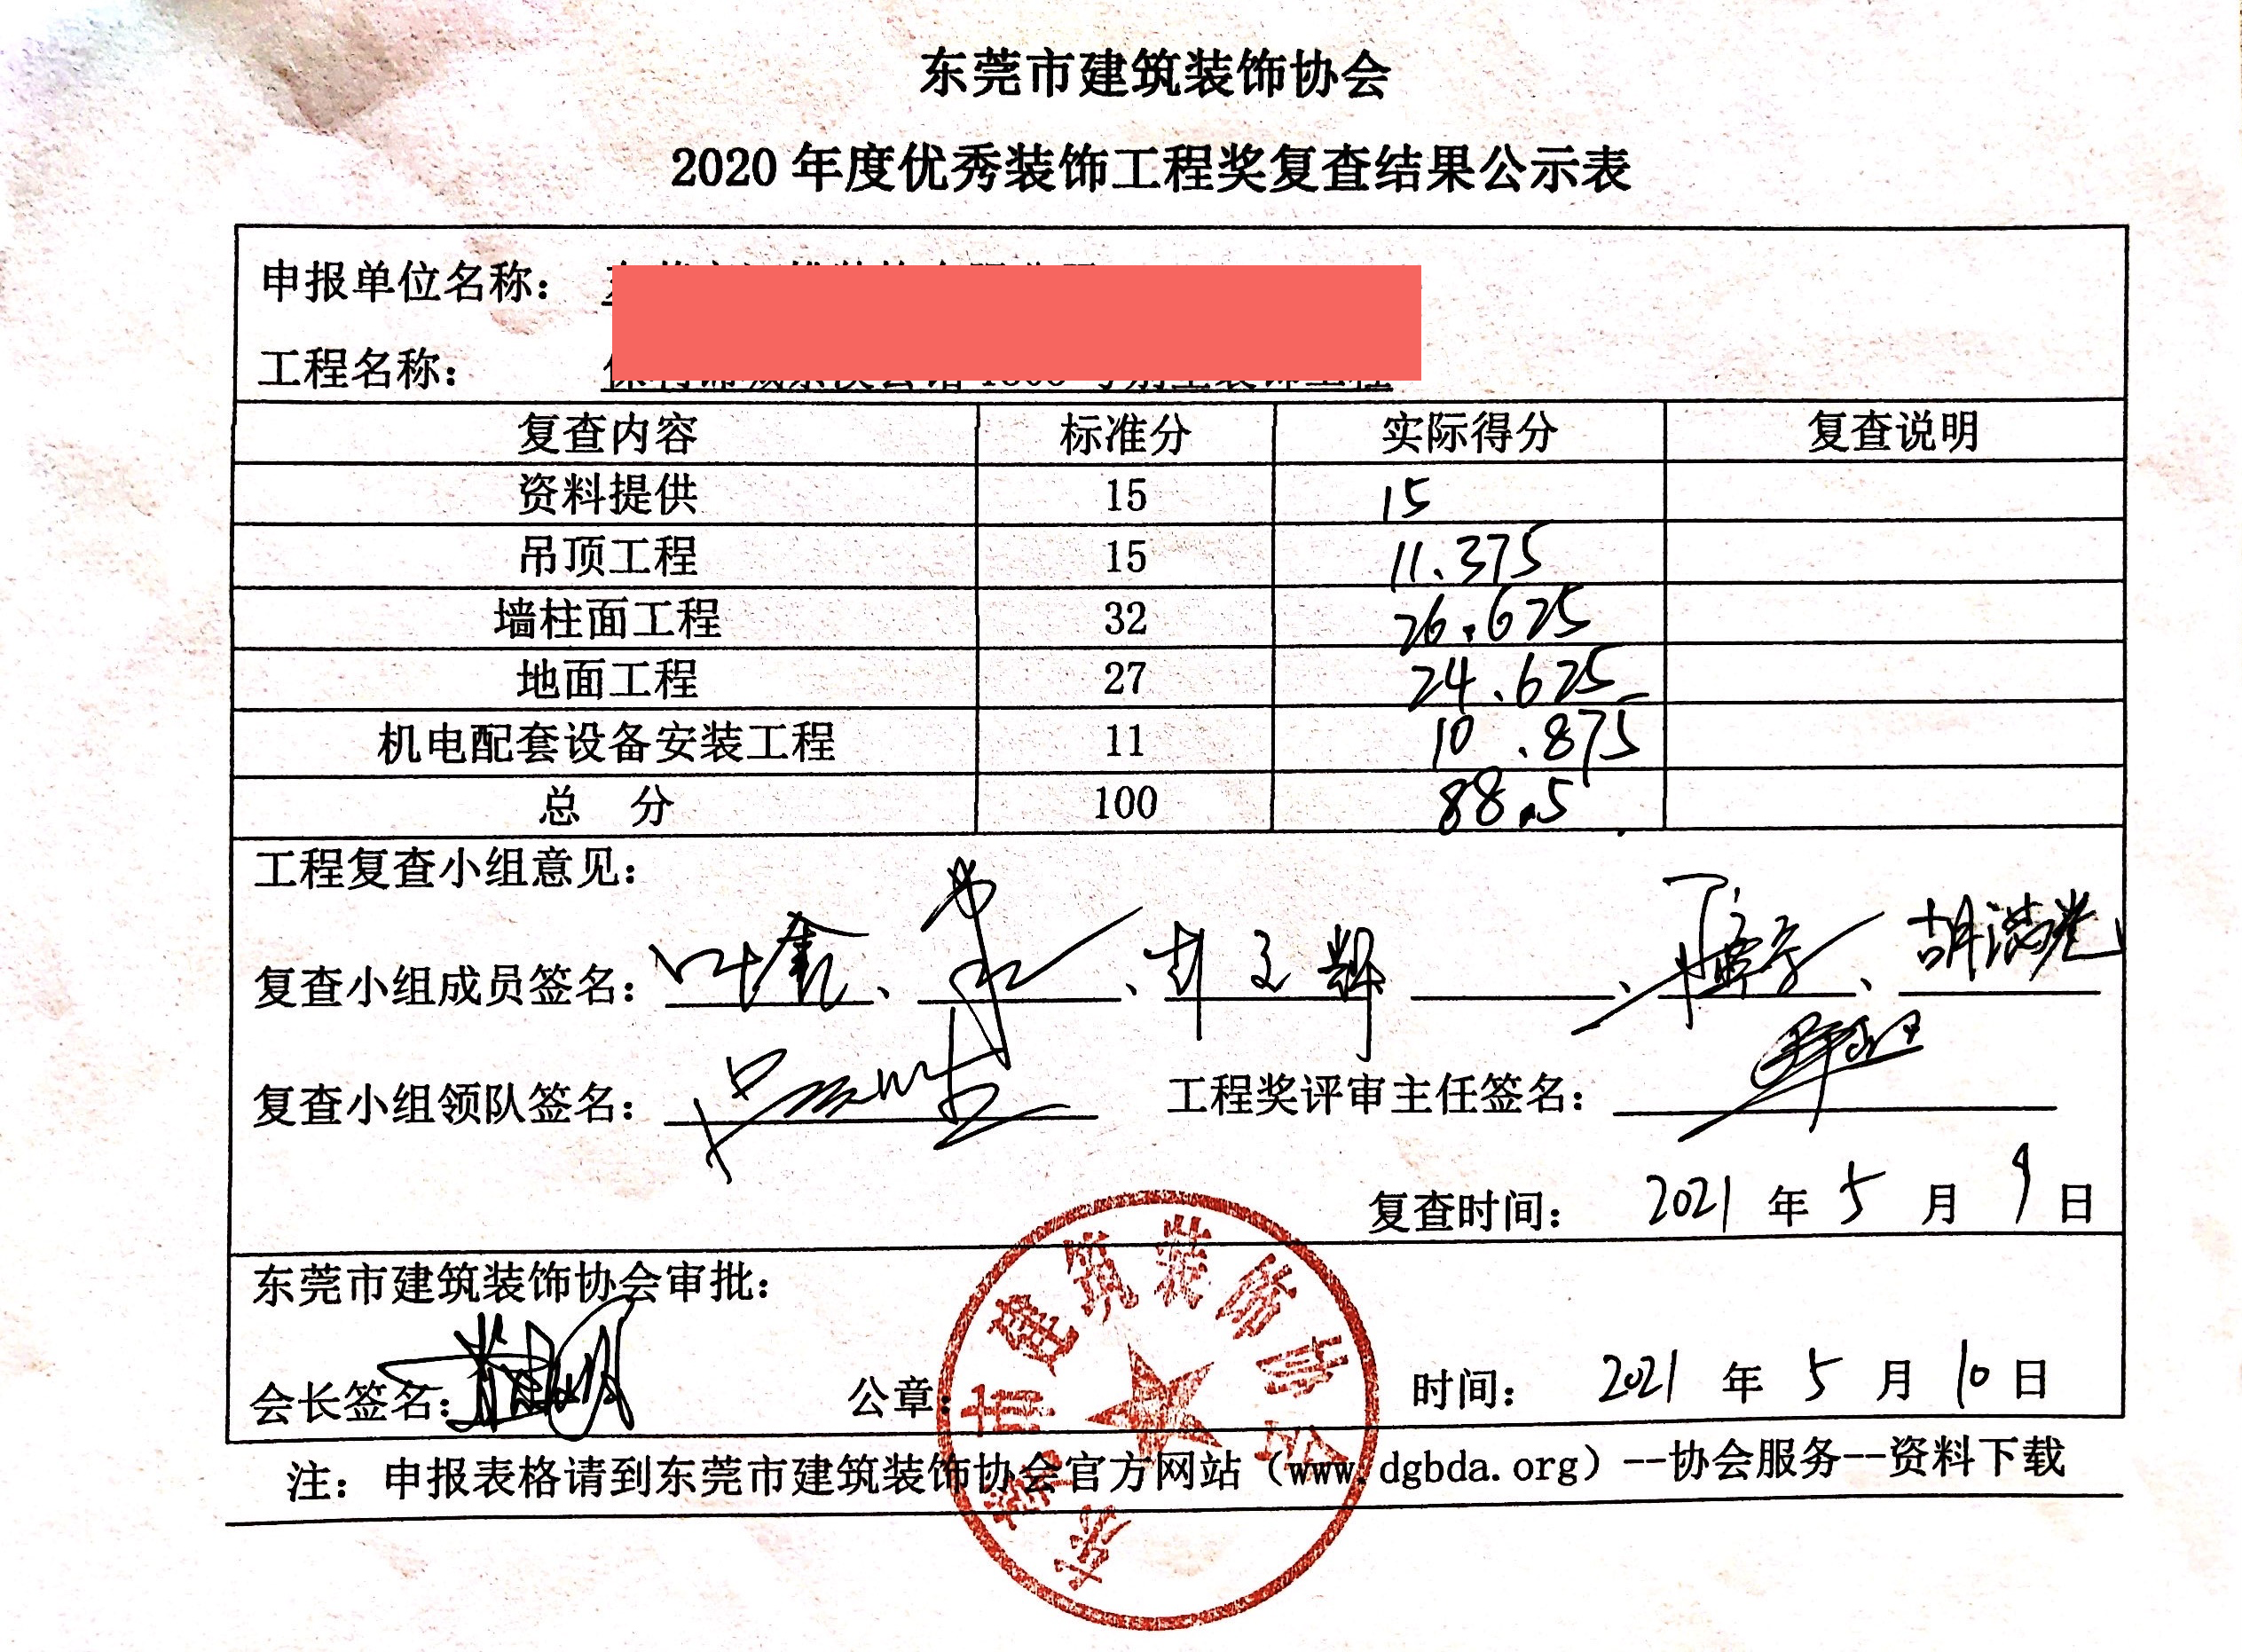 东莞市建筑装饰协会
2020 年度优秀装饰工程奖复查结果公示表
申报单位名称：
工程名称：
复查内容 标准分 实际得分 复查说明
资料提供 15 15
吊顶工程 15 11.375
墙柱面工程 32 26.625
地面工程 27 24.625
机电配套设备安装工程 11 10.875
总 分 100 88.5
工程复查小组意见：
复查小组成员签名：叶鑫、 、 、 、胡浩光
复查小组领队签名： 工程奖评审主任签名：
复查时间： 2021 年 5 月 9 日
东莞市建筑装饰协会审批：
会长签名： 公章： 时间： 2021 年 5 月 10 日
东莞市建筑装饰协会
注：申报表格请到东莞市建筑装饰协会官方网站（www.dgbda.org）--协会服务--资料下载